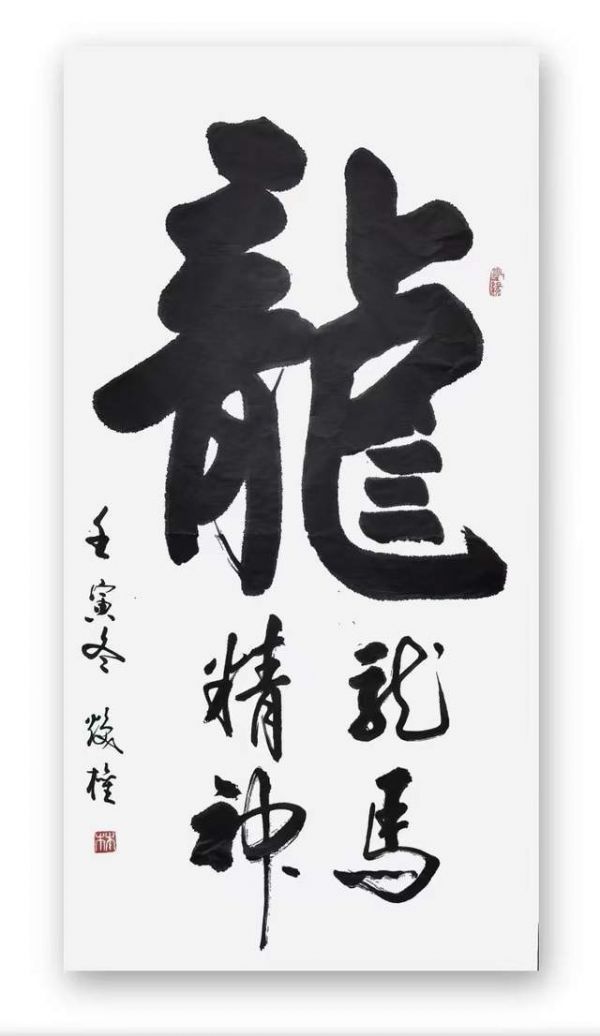 龍
龍馬
精神
壬寅冬
林